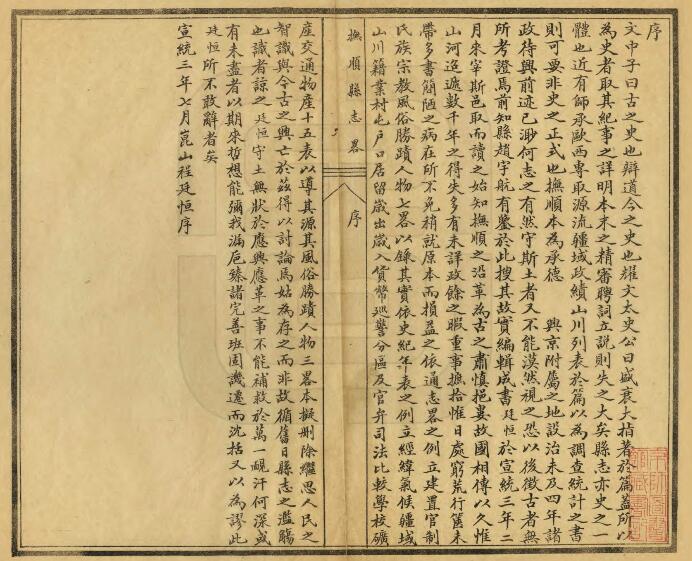 序
文中子曰古之史也辯道今之史也耀文太史公曰盛衰大指著於篇蓋所以
為史者取其紀事之詳明本末之精審聘詞立說則失之大矣縣志亦史之一
體也近有師承歐西專取源流疆域政績山川列表於篇以為調查統計之書
則可要非史之正式也撫順本為承德 興京附屬之地設治未及四年諸
政待興前迹已渺何志之有然守斯土者又不能漠然視之恐以後徵古者無
所考證焉前知縣趙宇航有鑒於此搜其故實編輯成書廷恒於宣統三年二
月來宰斯邑取而讀之始知撫順之沿革為古之肅慎挹婁故國相傳以久惟
山河迢遞數千年之得失多有未詳政餘之暇重事摭拾惟日處窮荒行篋未
帶多書簡陋之病在所不免稍就原本而損益之依通志畧之例立建置官制
氏族宗教風俗勝蹟人物七畧以錄其實依史紀年表之例立經緯氣候疆域
山川籍業村屯戶口居留歲出歲入貨幣巡警分區及官弁司法比較學校礦
撫順縣志畧
序
產交通物產十五表以導其源其風俗勝蹟人物三畧本擬刪除繼思人民之
智識與今古之興亡於茲得以討論焉姑為存之而非故循舊日縣志之濫觴
也識者諒之廷恒守土無狀於應興應革之事不能補救於萬一靦汗何深或
有未盡者以期來哲想能彌我漏巵臻諸完善班固譏遷而沈括又以為謬此
廷恒所不敢辭者矣
宣統三年七月崑山程廷恒序